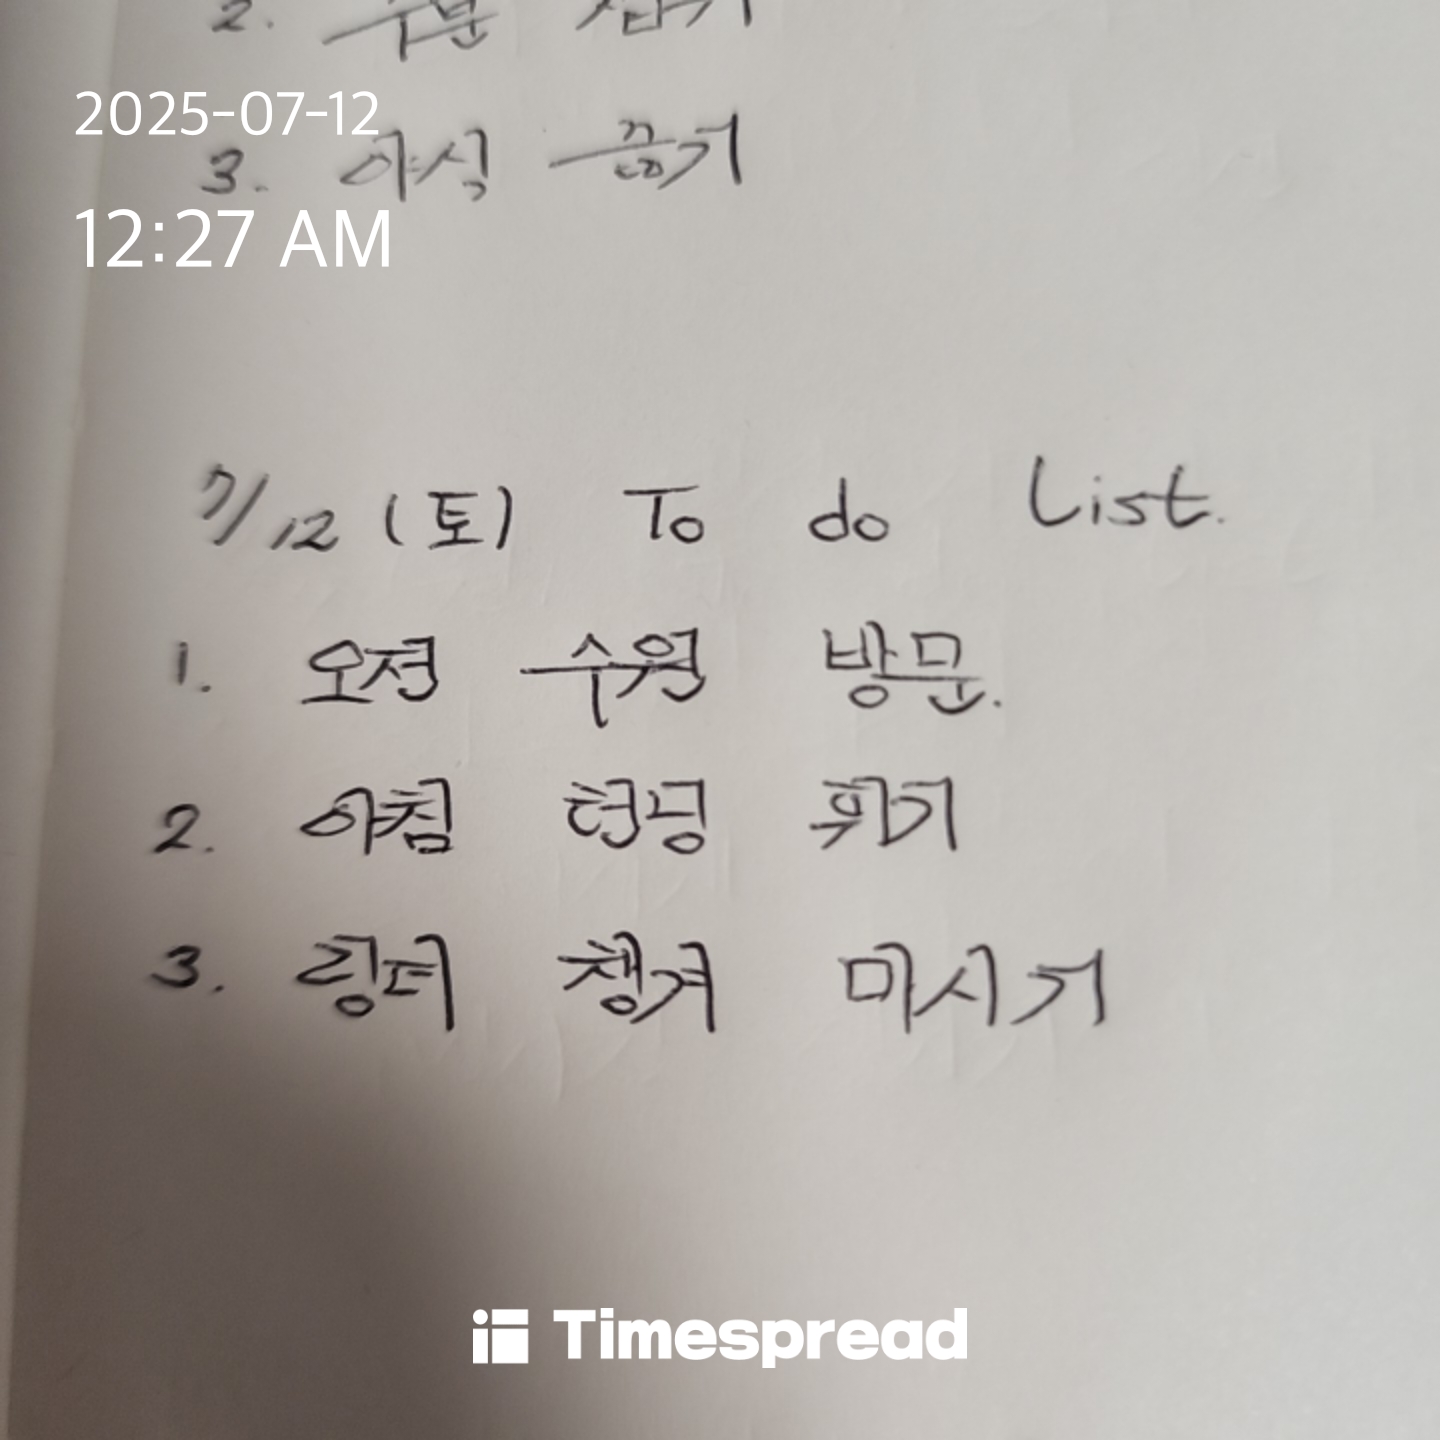 2. 수분 섭취
2025-07-12
3. 야식 금지
12:27 AM
7/12 (토) To do List.
1. 오전 수원 방문.
2. 아침 런닝 뛰기
3. 링티 챙겨 마시기
Timespread